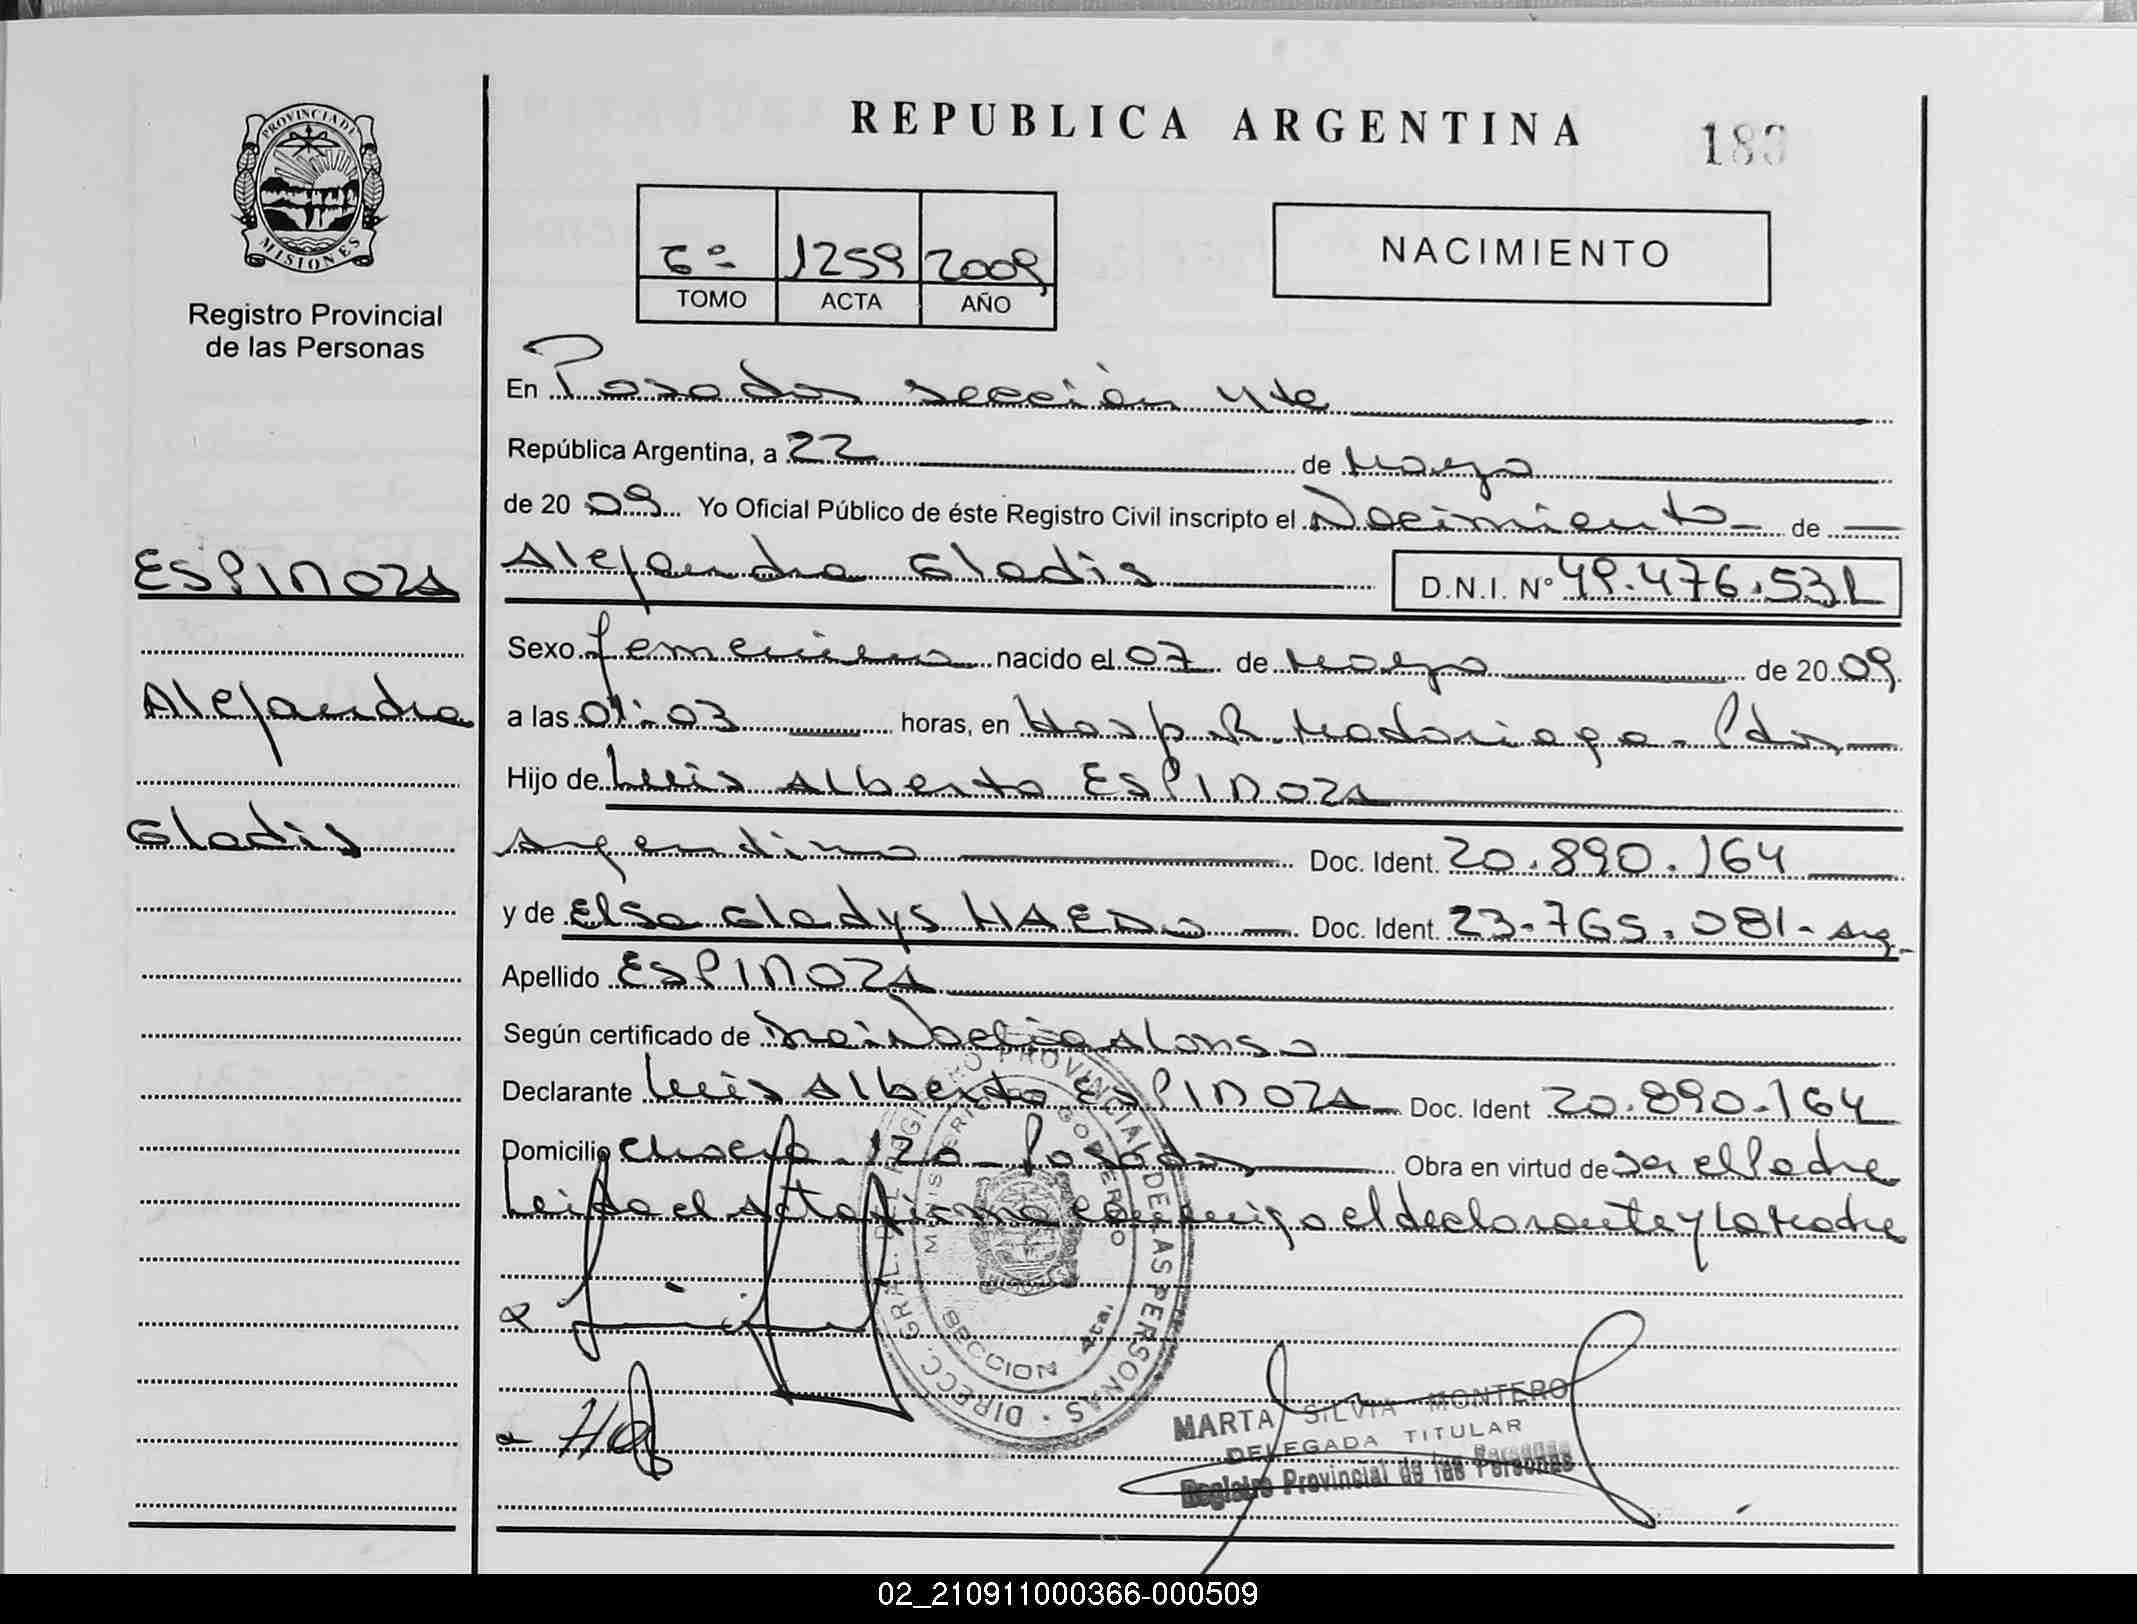 REPUBLICA ARGENTINA
PROVINCIA DE
MISIONES
Registro Provincial
de las Personas
6º 1259 2009
TOMO ACTA AÑO
NACIMIENTO
En Posadas sección 4ta
República Argentina, a 22 de Mayo
de 20 09 Yo Oficial Público de éste Registro Civil inscripto el Nacimiento de
ESPINOZA
Alejandra Gladis D.N.I. Nº 49.476.531
Sexo femenino nacido el 07 de Mayo de 20 09
Alejandra
a las 01:03 horas, en Hosp. R. Madariaga - Pdas
Hijo de Luis Alberto ESPINOZA
Gladis
Argentino Doc. Ident. 20.890.164
y de Elsa Gladys HAEDO Doc. Ident. 23.765.081 - Arg.
Apellido ESPINOZA
Según certificado de Dra. Noelia Alonso
Declarante Luis Alberto ESPINOZA Doc. Ident 20.890.164
Domicilio 120 - Posadas Obra en virtud de ser el Padre
Leída el Acta firma conmigo el declarante y la Madre
DIRECC. GRAL. DEL REGISTRO PROVINCIAL DE LAS PERSONAS
MINISTERIO GOBIERNO
SECCION 4ta.
MARTA SILVIA MONTERO
DELEGADA TITULAR
Registro Provincial de las Personas
02_210911000366-000509